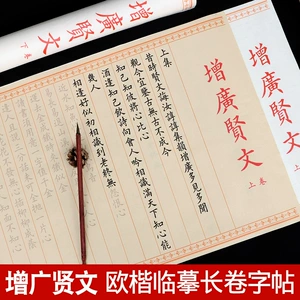 賢文
下卷
增廣賢文
上卷
增廣賢文
上卷
上集
昔時賢文誨汝諄諄集韻增廣多見多聞
觀今宜鑒古無古不成今
知己知彼將心比心
酒逢知己飲詩向會人吟相識滿天下知心能
幾人
相逢好似初相識到老終無
增广贤文 欧楷临摹长卷字帖